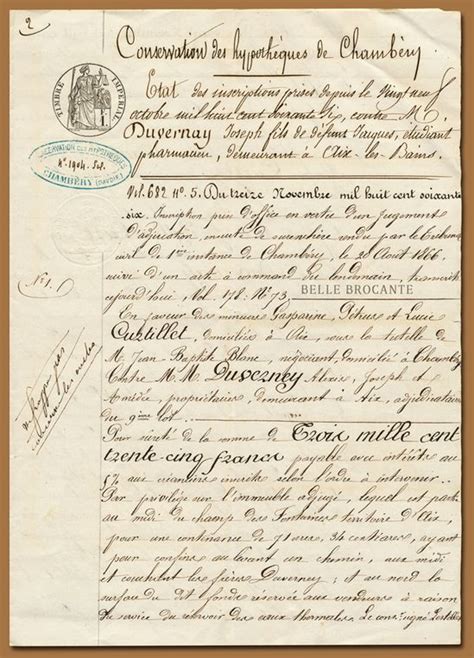 2
Conservation des hypothèques de Chambéry
TIMBRE IMPÉRIAL
Etat des inscriptions prises depuis le vingt neuf
octobre mil huit cent soixante six, contre M.
Duvernay Joseph fils de défunt Jacques, étudiant
pharmacien, demeurant à Aix-les-Bains.
CONSERVATION DES HYPOTHÈQUES
CHAMBÉRY (SAVOIE)
Vol. 682 N°. 5. Du treize Novembre mil huit cent soixante
six. Inscription prise d'office en vertu d'un jugement
d'adjudication ensuite de surenchère rendu par le tribunal
civil de 1ère instance de Chambéry, le 20 Août 1866,
suivi d'un acte à command du lendemain, transcrit
aujourd'hui, Vol. 178. N°. 73.
BELLE BROCANTE
N°. 1.
En faveur des mineurs Gasparine, Pétrus et Lucie
Curtillet, domiciliés à Aix, sous la tutelle de
M. Jean-Baptiste Blanc, négociant, domicilié à Chambéry
Contre M.M. Duverney Alexis, Joseph et
Amédée, propriétaires, demeurant à Aix, adjudicataires
du 9ème lot.
Pour sûreté de la somme de Trois mille cent
trente cinq francs payable avec intérêts au
5% aux créanciers inscrits selon l'ordre à intervenir
Par privilège sur l'immeuble adjugé, lequel est parti
au midi du champ des Fontaines territoire d'Aix,
pour une contenance de 71 ares, 34 centiares, ayant
pour confins au levant un chemin, aux midi
et couchant les frères Duverney; et au nord le
surplus du dit fonds réservé aux vendeurs à raison
du service du réservoir des eaux thermales. Le conseiller